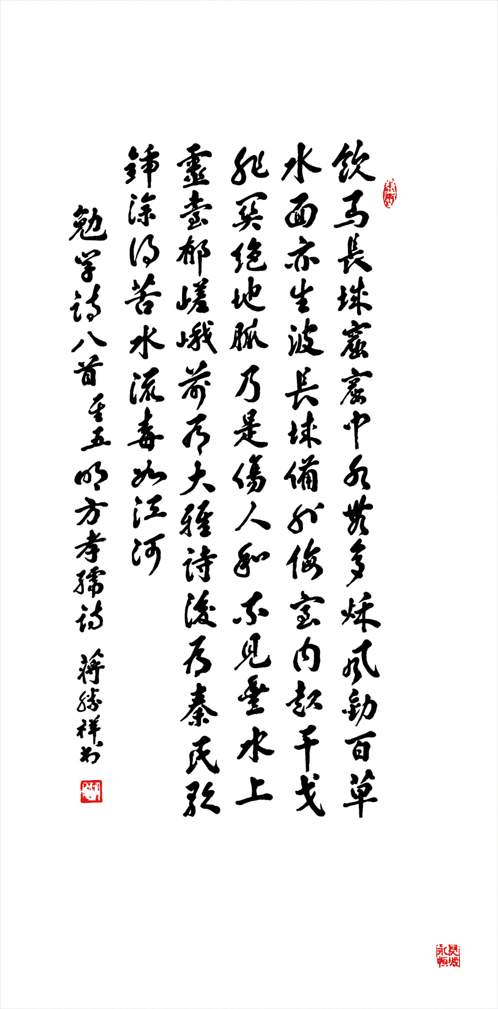 飲马長城窟窟中水無多秋风勁百草
水面亦生波長城備外侮室内起干戈
非関絕地脈乃是傷人和不見豐水上
靈臺郁嵯峨前为大雅詩後为秦民歌
鍤深得苦水流毒如江河
勉学詩八首其五明方孝孺詩 蔣勝祥书